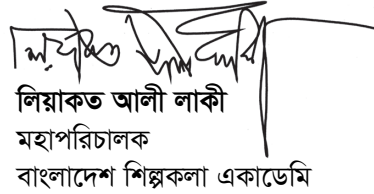 লিয়াকত আলী লাকী
মহাপরিচালক
বাংলাদেশ শিল্পকলা একাডেমি